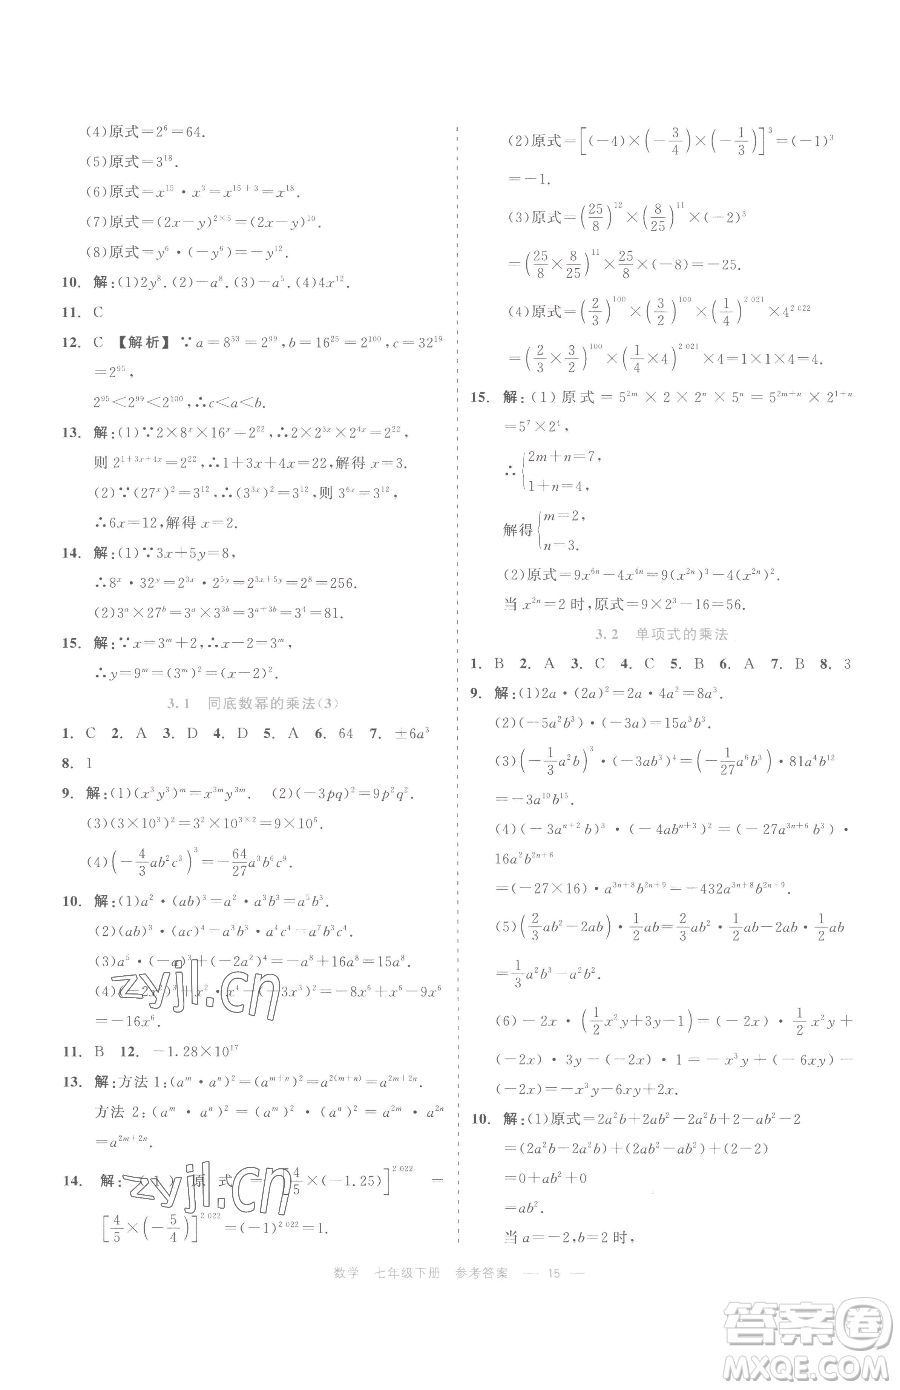 (4)原式=2⁶=64.
(5)原式=3¹⁸.
(6)原式=x¹⁵·x³=x¹⁵⁺³=x¹⁸.
(7)原式=(2x-y)²ˣ⁵=(2x-y)¹⁰.
(8)原式=y⁶·(-y⁶)=-y¹².
10. 解:(1)2y⁸. (2)-a⁸. (3)-a⁵. (4)4x¹².
11. C
12. C 【解析】∵a=8³³=2⁹⁹,b=16²⁵=2¹⁰⁰,c=32¹⁹
=2⁹⁵,
2⁹⁵<2⁹⁹<2¹⁰⁰,∴c<a<b.
13. 解:(1)∵2×8ˣ×16ˣ=2²²,
则2^(1+3x+4x)=2²²,∴1+3x+4x=22,解得x=3.
(2)∵(27ˣ)²=3¹²,∴(3³ˣ)²=3¹²,则3⁶ˣ=3¹²,
∴6x=12,解得x=2.
14. 解:(1)∵3x+5y=8,
∴8ˣ·32ʸ=2³ˣ·2⁵ʸ=2^(3x+5y)=2⁸=256.
(2)3ᵃ×27ᵇ=3ᵃ×3³ᵇ=3^(a+3b)=3⁴=81.
15. 解:∵x=3ᵐ+2,∴3ᵐ=x-2,
∴y=9ᵐ=(3ᵐ)²=(x-2)².
3.1 同底数幂的乘法(3)
1. C 2. A 3. D 4. D 5. A 6. 64 7. ±6a³
8. 1
9. 解:(1)(x³y³)ᵐ=x³ᵐy³ᵐ. (2)(-3pq)²=9p²q².
(3)(3×10³)²=3²×10³ˣ²=9×10⁶.
(4)(-4/3 ab²c³)³=-64/27 a³b⁶c⁹.
10. 解:(1)a²·(ab)³=a²·a³b³=a⁵b³.
(2)(ab)³·(ac)⁴=a³b³·a⁴c⁴=a⁷b³c⁴.
(3)a⁵·(-a)³+(-2a²)⁴=-a⁸+16a⁸=15a⁸.
(4)(-2x²)³+x²·x⁴-(-3x³)²=-8x⁶+x⁶-9x⁶
=-16x⁶.
11. B 12. -1.28×10¹⁷
13. 解:方法1:(aᵐ·aⁿ)²=(aᵐ⁺ⁿ)²=a^(2(m+n))=a^(2m+2n).
方法2:(aᵐ·aⁿ)²=(aᵐ)²·(aⁿ)²=a²ᵐ·a²ⁿ
=a^(2m+2n).
14. 解:(1)原式=[4/5×(-1.25)]^2 022=
[4/5×(-5/4)]^2 022=(-1)^2 022=1.
(2)原式=[(-4)×(-3/4)×(-1/3)]³=(-1)³
=-1.
(3)原式=(25/8)¹²×(8/25)¹¹×(-2)³
=(25/8×8/25)¹¹×25/8×(-8)=-25.
(4)原式=(2/3)¹⁰⁰×(3/2)¹⁰⁰×(1/4)^2 021×4^2 022
=(2/3×3/2)¹⁰⁰×(1/4×4)^2 021×4=1×1×4=4.
15. 解:(1)原式=5²ᵐ×2×2ⁿ×5ⁿ=5^(2m+n)×2¹⁺ⁿ
=5⁷×2⁴,
∴{2m+n=7,
1+n=4,
解得{m=2,
n-3.
(2)原式=9x⁶ⁿ-4x⁴ⁿ=9(x²ⁿ)³-4(x²ⁿ)².
当x²ⁿ=2时,原式=9×2³-16=56.
3.2 单项式的乘法
1. B 2. A 3. C 4. C 5. B 6. A 7. D 8. 3
9. 解:(1)2a·(2a)²=2a·4a²=8a³.
(2)(-5a²b³)·(-3a)=15a³b³.
(3)(-1/3 a²b)³·(-3ab³)⁴=(-1/27 a⁶b³)·81a⁴b¹²
=-3a¹⁰b¹⁵.
(4)(-3aⁿ⁺²b)³·(-4abⁿ⁺³)²=(-27a³ⁿ⁺⁶b³)·
16a²b²ⁿ⁺⁶
=(-27×16)·a³ⁿ⁺⁸b²ⁿ⁺⁹=-432a³ⁿ⁺⁸b²ⁿ⁺⁹.
(5)(2/3 ab²-2ab)·1/2 ab=2/3 ab²·1/2 ab-2ab·1/2 ab
=1/3 a²b³-a²b².
(6)-2x·(1/2 x²y+3y-1)=(-2x)·1/2 x²y+
(-2x)·3y+(-2x)·(-1)=-x³y+(-6xy)+
(+2x)=-x³y-6xy+2x.
10. 解:(1)原式=2a²b+2ab²-2a²b+2-ab²-2
=(2a²b-2a²b)+(2ab²-ab²)+(2-2)
=0+ab²+0
=ab².
当a=-2,b=2时,
数学 七年级下册 参考答案 — 15 —
zyjl.cn
zyjl.cn
答案圈
MXQE.COM